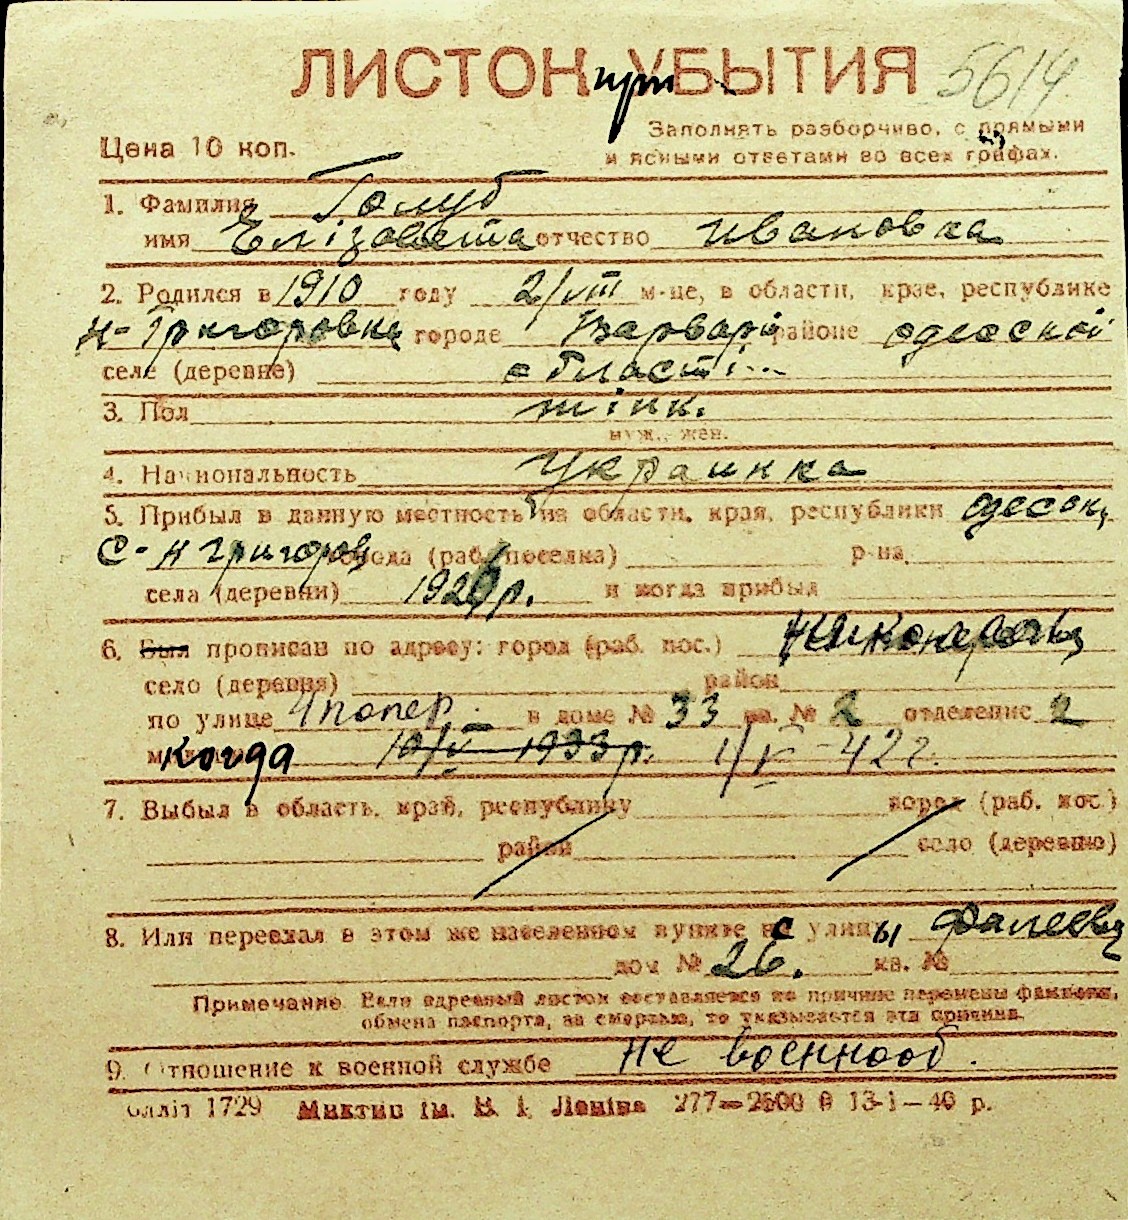 ЛИСТОК при УБЫТИЯ 5614
Цена 10 коп.
Заполнять разборчиво, с прямыми
и ясными ответами во всех графах.
1. Фамилия Голуб
имя Елізовета отчество Ивановна
2. Родился в 1910 году 2/VIII м-це, в области, крае, республике
Н-Григоровка городе Варварі районе одесской
селе (деревне) області...
3. Пол жінк.
муж., жен.
4. Национальность Украинка
5. Прибыл в данную местность из области, края, республики одеськ
с-Н Григоров города (раб. поселка) р-на
села (деревни) 1926 р. и когда прибыл
6. Был прописан по адресу: город (раб. пос.) Николаев
село (деревня) район
по улице 4 попер. в доме № 33 кв. № 2 отделение 2
когда 10/V 1933 р. 1/V-42 г.
7. Выбыл в область, край, республику город (раб. пос.)
район село (деревню)
8. Или переехал в этом же населенном пункте с улицы Фалеевск
дом № 26. кв. №
Примечание. Если адресный листок составляется по причине перемены фамилии,
обмена паспорта, за смертью, то указывается эта причина.
9. Отношение к военной службе не военнооб.
Облліт 1729 Миктип ім. В. І. Леніна 277—2500 0 13-1—40 р.